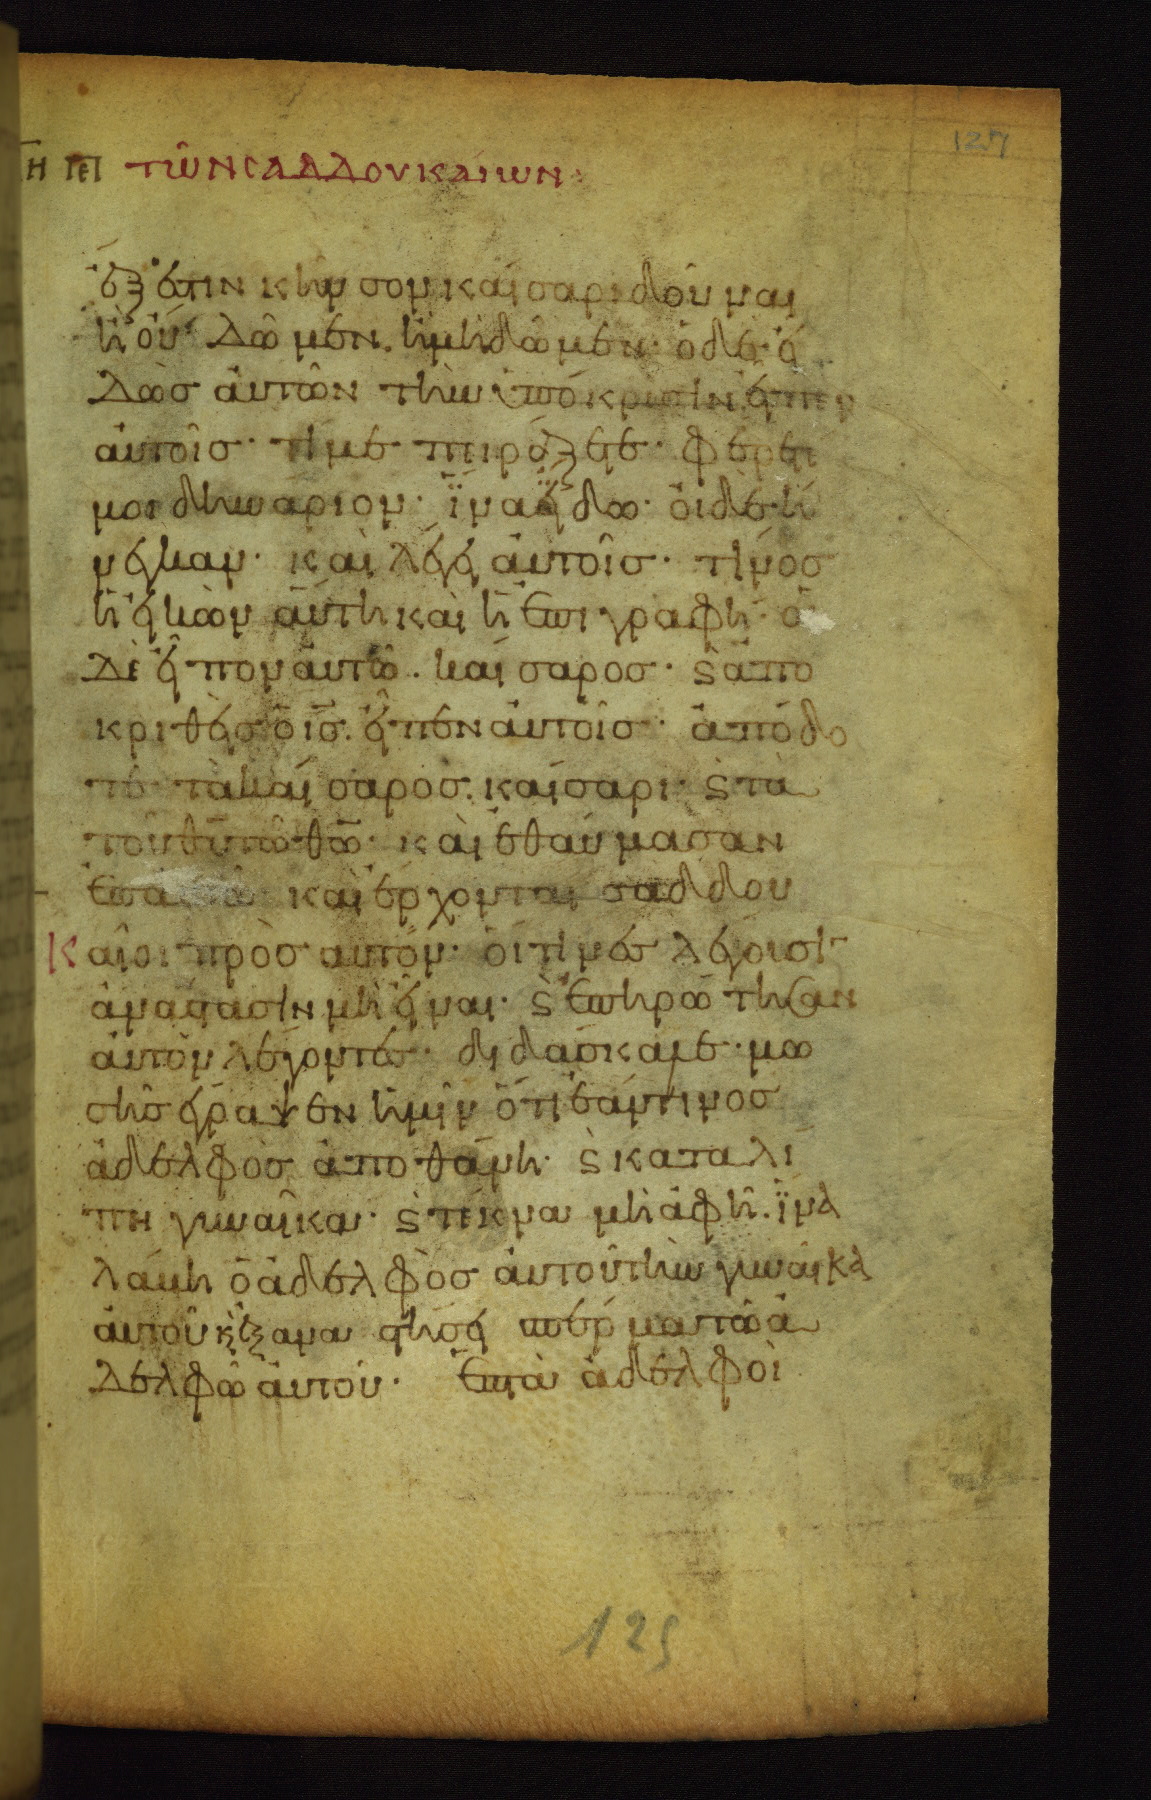 127
Η ΠΕΡΙ ΤῶΝ CΑΔΔΟΥΚΑΙΩΝ:
ἔξεστιν κῆνσον καίσαρι δοῦναι
ἢ οὔ· δῶμεν. ἢ μὴ δῶμεν· ὁ δὲ εἰ
δὼς αὐτῶν τὴν ὑπόκρισιν εἶπεν
αὐτοῖς· τί με πειράζετε· φέρετέ
μοι δηνάριον· ἵνα εἴδω· οἱ δὲ ἤ
νεγκαν· καὶ λέγει αὐτοῖς· τίνος
ἡ εἰκὼν αὕτη καὶ ἡ ἐπιγραφή· οἱ
δὲ εἶπον αὐτῶ. καίσαρος· ϛ ἀπο
κριθεὶς ὁ ις. εἶπεν αὐτοῖς· ἀπόδο
τε τὰ καίσαρος. καίσαρι· ϛ τὰ
τοῦ θυ τῶ θω· καὶ ἐθαύμασαν
ἐπ αὐτῶ καὶ ἔρχονται σαδδου
Καῖοι πρὸς αὐτόν· οἵτινες λέγουσιν
ἀνάστασιν μὴ εἶναι· ϛ ἐπηρώτησαν
αὐτὸν λέγοντες· διδάσκαλε· μω
σῆς ἔγραψεν ἡμῖν ὅτι ἐάν τινος
ἀδελφὸς ἀποθάνη· ϛ καταλί
πη γυναῖκα· ϛ τέκνα μὴ ἀφῆ. ἵνα
λάβη ὁ ἀδελφὸς αὐτοῦ τὴν γυναῖκα
αὐτοῦ κ ἐξαναστήσει σπέρμα τῶ ἀ
δελφῶ αὐτοῦ· ἑπτὰ ἀδελφοὶ
125